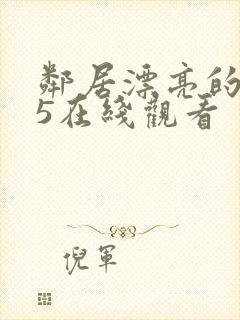 鄰居漂亮的
5在綫觀看
倪軍